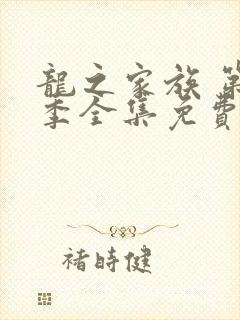 龍之家族 第
季全集免費
褚時健